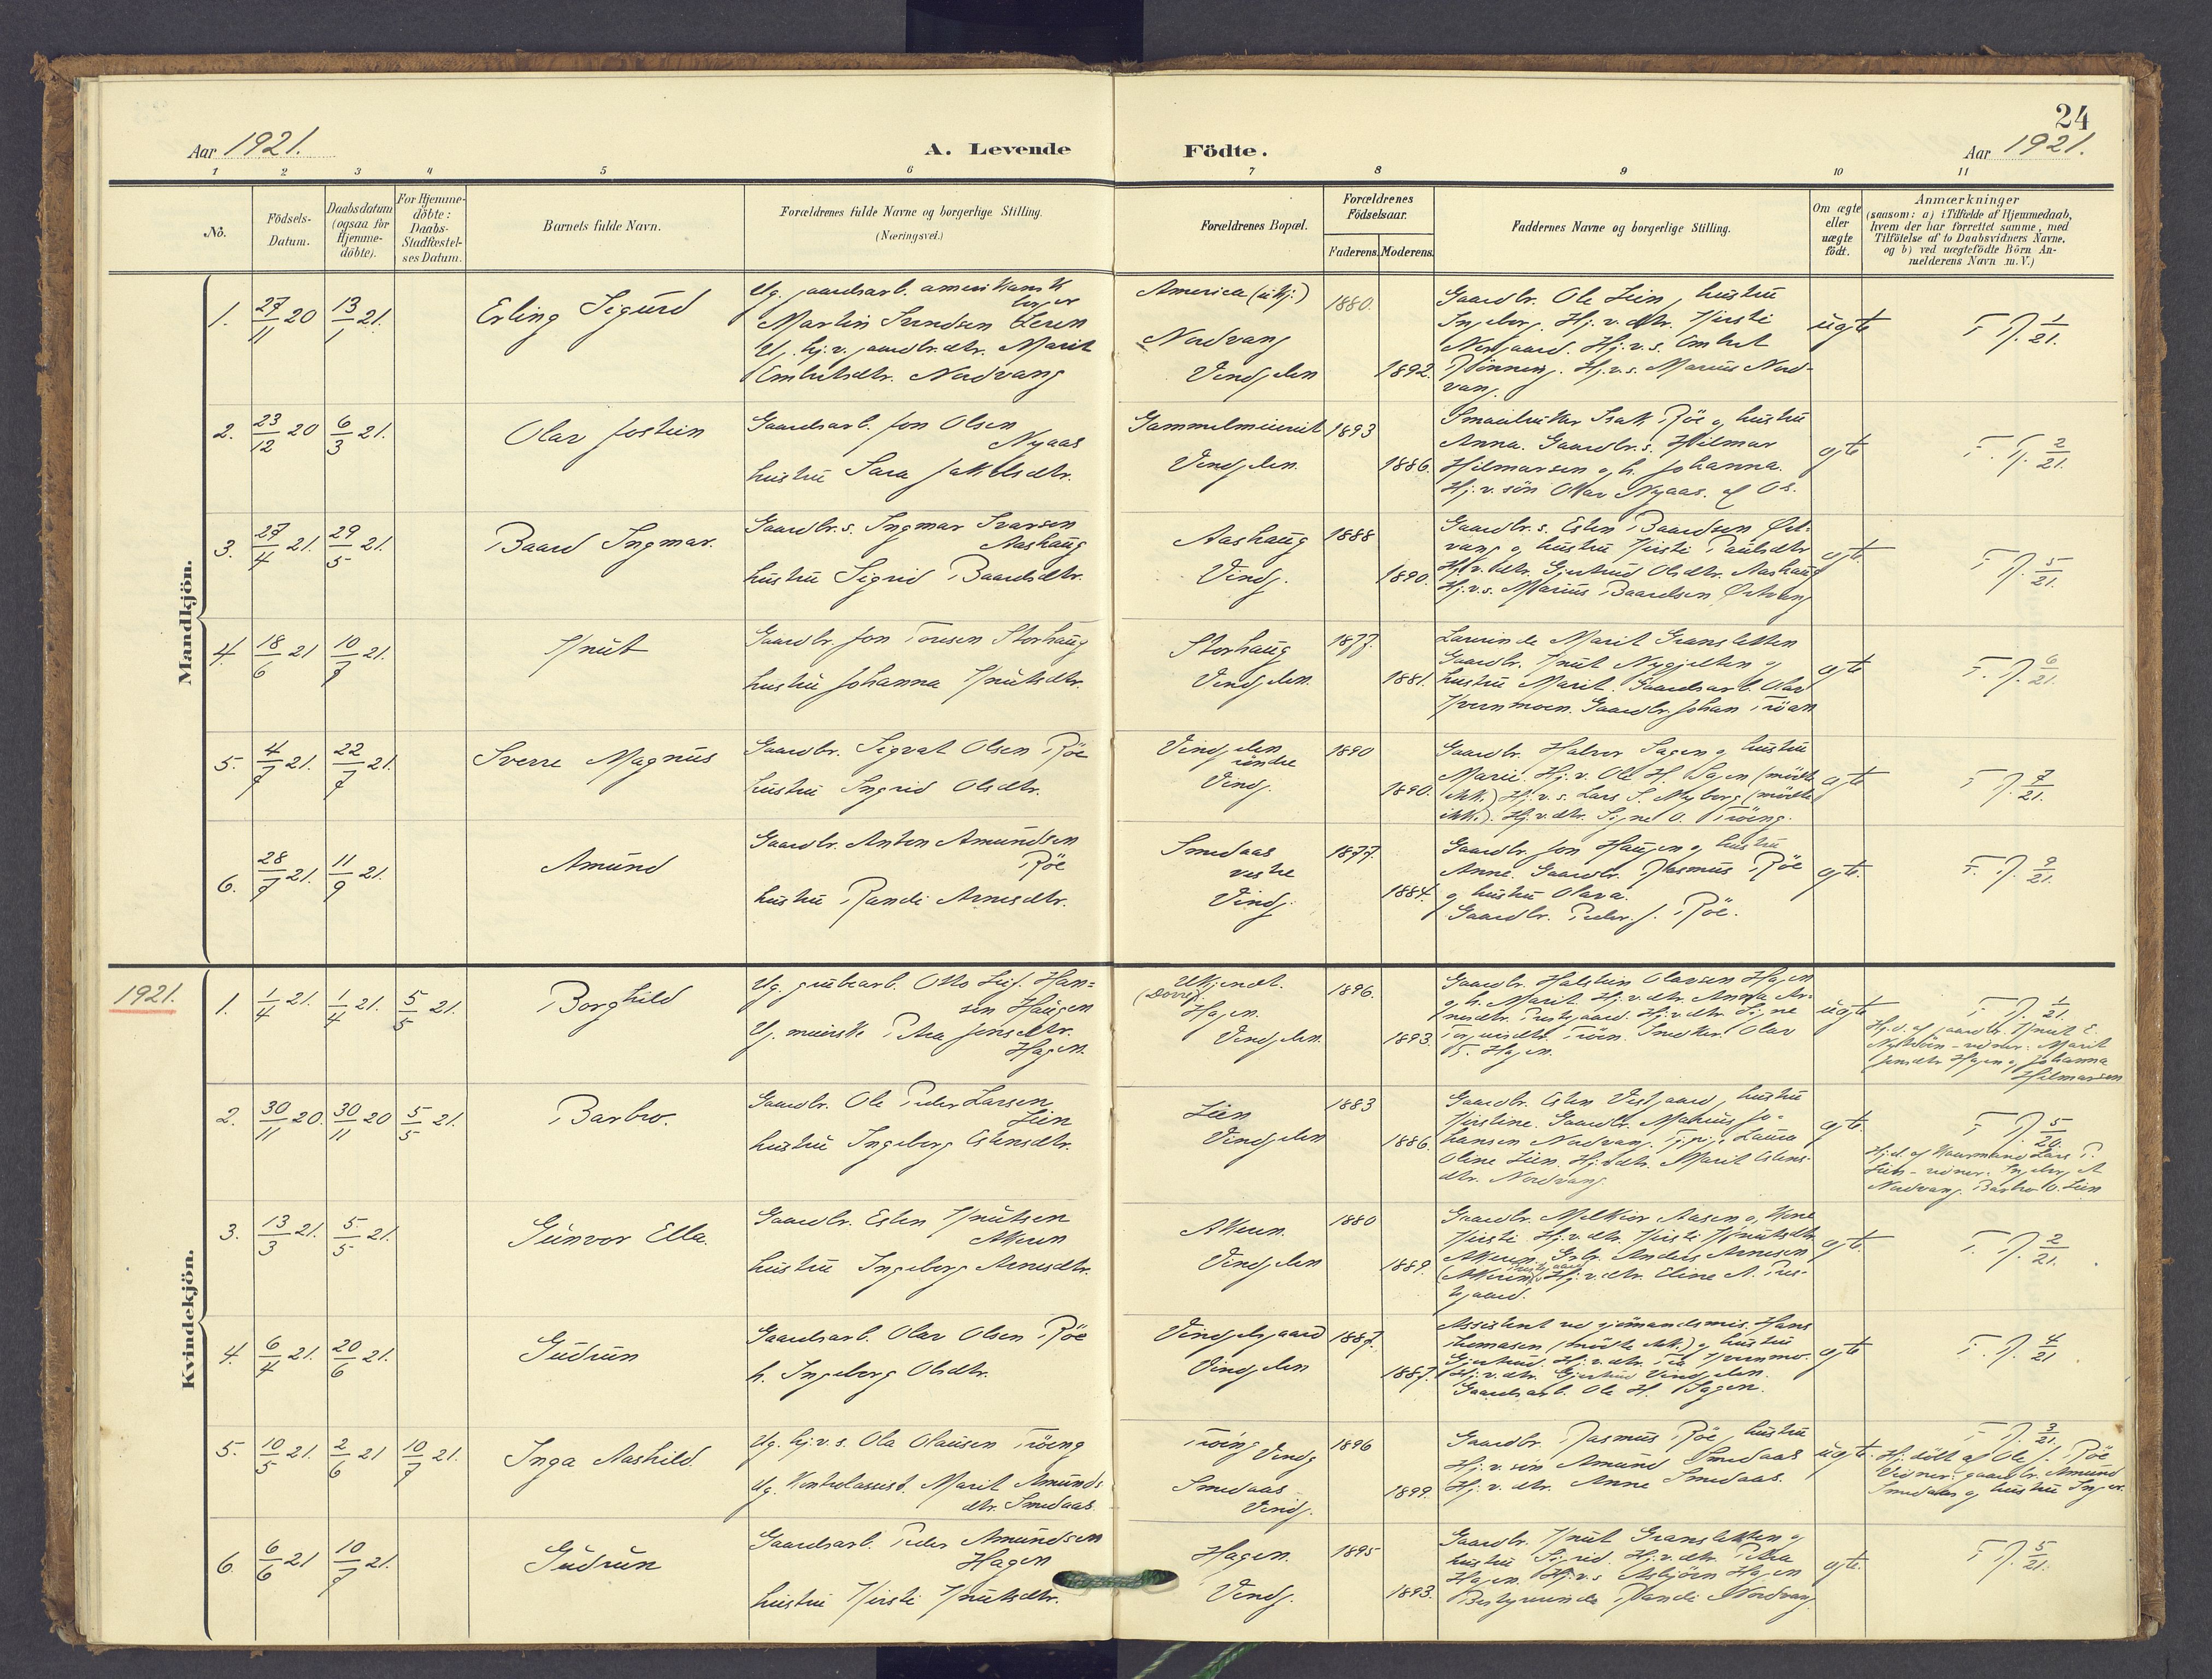 24
Aar 1921.
A. Levende Födte.
Aar 1921.
1 2 3 4 5 6 7 8 9 10 11
No.
Födsels-
Datum.
Daabsdatum
(ogsaa for
Hjemme-
döbte).
For Hjemme-
döbte:
Daabs-
Stadfæstel-
ses Datum.
Barnets fulde Navn.
Forældrenes fulde Navne og borgerlige Stilling.
(Næringsvei.)
Forældrenes Bopæl.
Forældrenes
Födselsaar.
Faderens. Moderens.
Faddernes Navne og borgerlige Stilling.
Om ægte
eller
uægte
födt.
Anmærkninger
(saasom: a) i Tilfælde af Hjemmedaab,
hvem der har forrettet samme, med
Tilföielse af to Daabsvidners Navne.
og b) ved uægtefödte Börn An-
melderens Navn m.V.)
Mandkjön.
1. 27/11 20 13/1 21.
Erling Sigurd
Ug. gaardsarb. amerikansk
borger
Martin Svendsen
Ug. hj. v. gaardbr. dtr. Marit
Embretsdtr. Nordvang
America (ukj.)
Nordvang
Vingelen
1880.
1892.
Gaardbr. Ole Lien, hustru
Ingeborg. Hj. v. dtr. Kirsti
Norgaard. Hj. v. s. Embret
Rönning. Hj. v. s. Marius Nord-
vang.
uegte
F. R. 1/21.
2. 23/12 20 6/3 21.
Olav Jostein
Gaardsarb. Jon Olsen
Nyaas
hustru Sara Jakobsdtr.
Gammelmeieriet
Vingelen.
1893
1886.
Smaabruker Isak Röe og hustru
Anna. Gaardbr. s. Hilmar
Hilmarsen og h. Johanna.
Hj. v. sön Olav Nyaas. af Os.
egte
F. R. 2/21.
3. 27/4 21. 29/5 21.
Baard Ingmar.
Gaardbr. s. Ingmar Ivarsen
Aashaug
hustru Sigrid Baardsdtr.
Aashaug
Ving.
1888
1890.
Gaardbr. s. Esten Baardsen Öst-
vang og hustru Kirsti Paulsdtr
Hj. v. dtr. Gjertrud Olsdtr. Aashaug
Hj. v. s. Marius Baardsen Östvang
egte
F. R. 5/21.
4. 18/6 21 10/7 21.
Knut
Gaardbr. Jon Tonsen Storhaug
hustru Johanna Knutsdtr.
Storhaug
Vingelen.
1877.
1881.
Lærerinde Marit Granslette
Gaardbr. Knut Nygjelten og
hustru Marit. Gaardsarb. Olav
Kvernmoen. Gaardbr. Johan Tröan
egte
F. R. 6/21.
5. 4/7 21. 22/7 21.
Sverre Magnus
Gaardbr. Sigvat Olsen Röe
hustru Ingrid Olsdtr.
Vingelen
söndre
Ving.
1890
1890.
Gaardbr. Halvor Sagen og hustru
Marie. Hj. v. Ole H. Sagen (mödte
ikke) Hj. v. s. Lars S. Myberg (mödte
ikke). Hj. v. dtr. Signe O. Tröeng.
egte
F. R. 7/21.
6. 28/7 21. 11/9 21.
Amund
Gaardbr. Anton Amundsen
Röe
hustru Randi Arnesdtr.
Smedaas
vestre
Ving.
1877.
1884.
Gaardbr. Jon Haugen og hustru
Anne. Gaardbr. Rasmus Röe
og hustru Olava.
Gaardbr. Peder J. Röe.
egte.
F. R. 9/21.
1921.
Kvindekjön.
1. 1/4 21. 1/4 21. 5/5 21.
Borghild
Ug. grubearb. Otto Leif Han-
sen Haugen
Ug. meierske Petra Jensdtr.
Hagen.
Ukjendt.
(Dovre)
Hagen.
Vingelen.
1896.
1893.
Gaardbr. Halstein Olavsen Hagen
og h. Marit. Hj. v. dtr. Anna Ar-
nesdtr. Prestgaard. Hj. v. dtr. Signe
Tröen. Snedker Olav
Hagen.
uegte
F. R. 1/21.
Hj. d. af gaardbr. Knut E.
vidner: Marit
Jensdtr Hagen og Johanna
Hilmarsen
2. 30/11 20. 30/11 20 5/5 21.
Barbro.
Gaardbr. Ole Peder Larsen
Lien
hustru Ingeborg Estensdtr.
Lien
Vingelen
1883
1886.
Gaardbr. Esten Vestgaard, hustru
Kirstine. Gaardbr. Marius Jo-
hansen Nordvang. Laura
Oline Lien. Hj. v. dtr. Marit Estens-
dtr. Nordvang.
egte.
F. R. 5/20.
Hj. d. af Kaarmand Lars P.
Lien - vidner: Ingeborg A
Nordvang. Barbro O. Lien
3. 13/3 21. 5/5 21.
Gunvor Ella.
Gaardbr. Esten Knutsen
Akeren
hustru Ingeborg Arnesdtr.
Akeren.
Vingelen
1880
1889.
Gaardbr. Melkior Aasen og kone
Kirsti Hj. v. dtr. Kirsti Knutsdtr.
Akeren. Gbr. Anders Arnesen
Prestgaard
(Akeren). Hj. v. dtr. Eline A. Pres-
tgaard.
egte.
F. R. 2/21.
4. 6/4 21. 20/6 21.
Gudrun
Gaardsarb. Olav Olsen Röe
h. Ingeborg Olsdtr.
Vingelsgaard
Vingelen
1887.
1887.
Assistent ved sjömandsmis. Hans
Thomasen (mödte ikke) og hustru
Gjertrud. Hj. v. dtr. Kvernmo.
Hj. v. dtr. Gjertrud Vingelen.
Gaardsarb. Ole H. Sagen.
egte
F. R. 4/21.
5. 10/5 21. 2/6 21 10/7 21.
Inga Aashild.
Ug. hj. v. s. Ola Olausen Tröeng
Ug. Kontrolassist. Marit Amunds
dtr. Smedaas.
Tröeng Ving
Smedaas
Ving.
1896
1899.
Gaardbr. Rasmus Röe, hustru
Hj. v. sön Amund Smedaas
Hj. v. dtr. Anne Smedaas.
uegte.
F. R. 3/21.
Hj. döbt af Ole J. Röe
Vidner: gaardbr. Amund
Smedaas og hustru Inger.
6. 6/6 21 10/7 21.
Gudrun
Gaardsarb. Peder Amundsen
Hagen
hustru Kirsti Knutsdtr.
Hagen.
Ving.
1895
1893.
Gaardbr. Knut Granslette og
hustru Sigrid. Hj. v. dtr. Petra
Hagen. Hj. v. s. Asbjörn Hagen
Bestyrerinde Randi Nordvang.
egte.
F. R. 5/21.